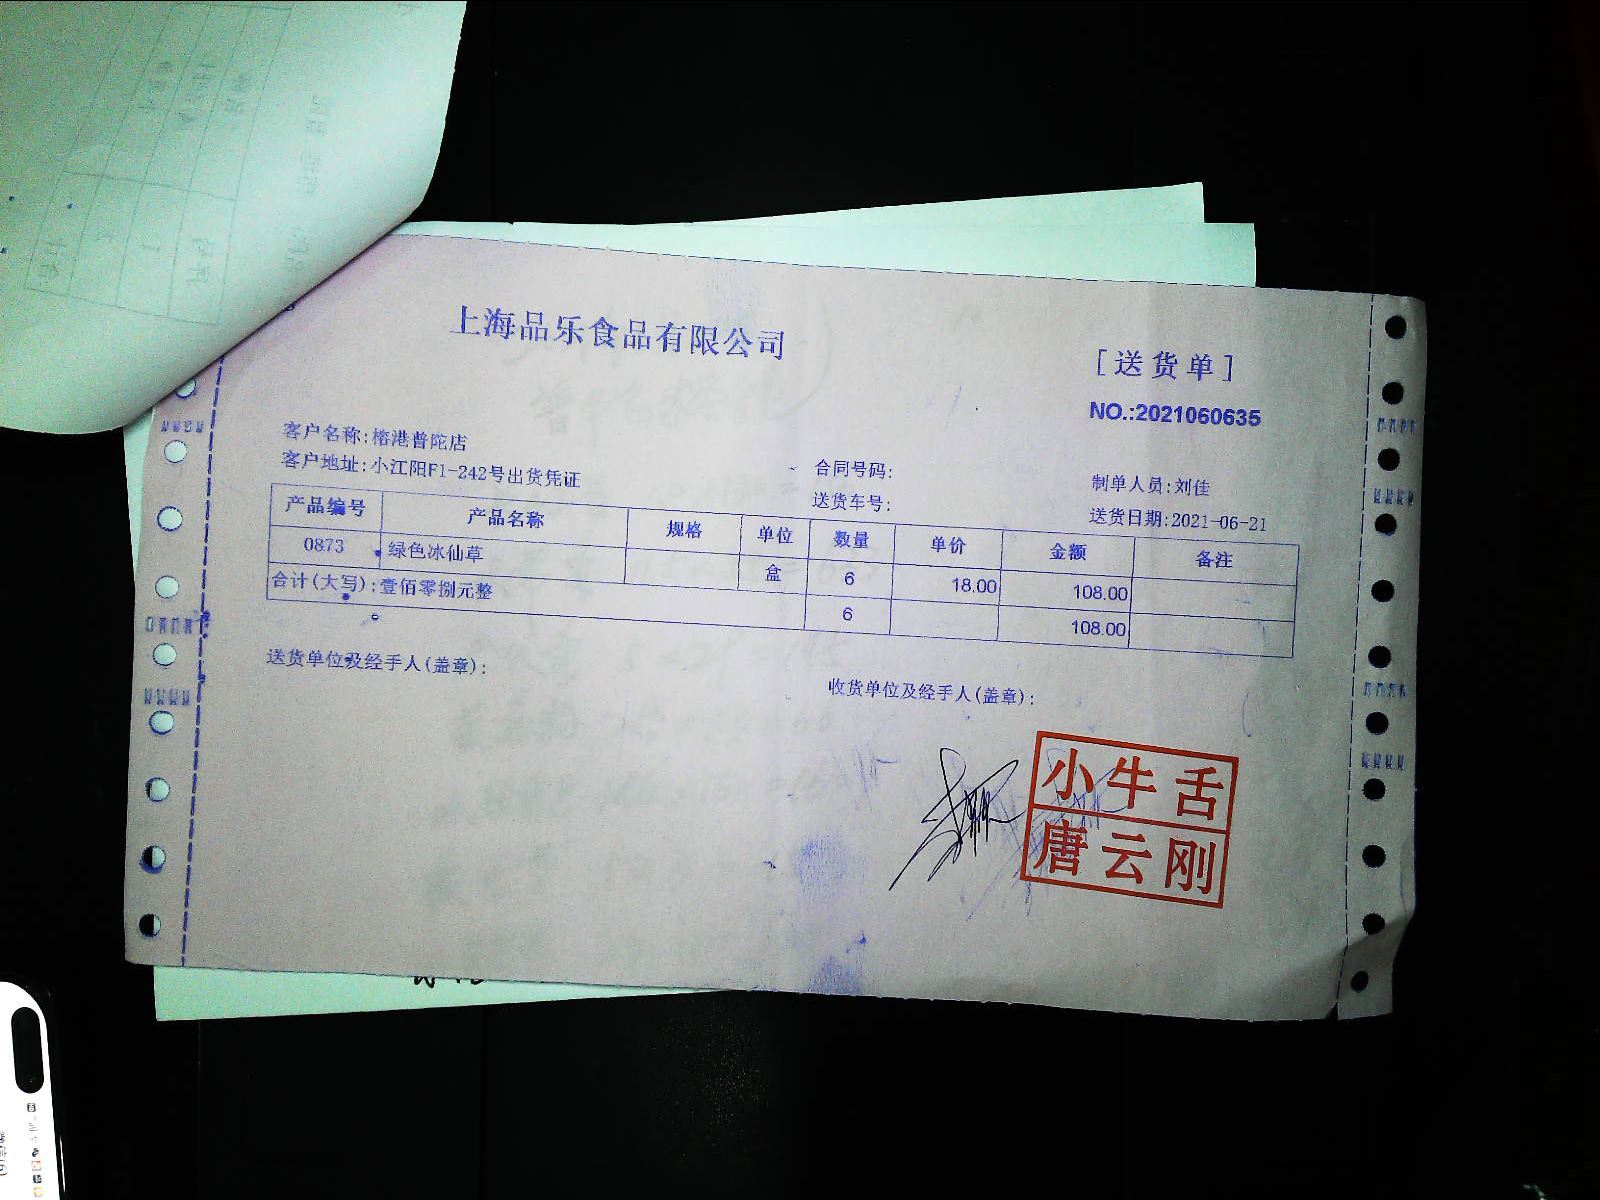 上海品乐食品有限公司
[送货单]
NO.:2021060635
客户名称:榕港普陀店
客户地址:小江阳F1-242号出货凭证
合同号码:
送货车号:
制单人员:刘佳
送货日期:2021-06-21
产品编号 产品名称 规格 单位 数量 单价 金额 备注
0873 绿色冰仙草 盒 6 18.00 108.00
合计(大写):壹佰零捌元整 6 108.00
送货单位及经手人(盖章):
收货单位及经手人(盖章):
小牛舌
唐云刚